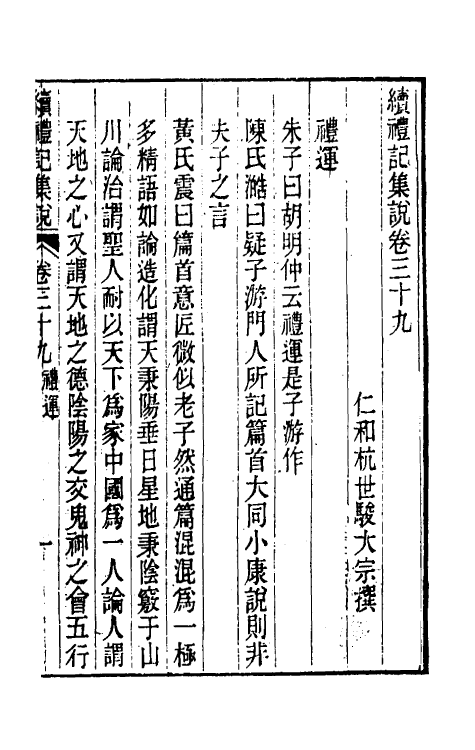 續禮記集說卷三十九
仁和杭世駿大宗撰
禮運
朱子曰胡明仲云禮運是子游作
陳氏澔曰疑子游門人所記篇首大同小康說則非
夫子之言
黃氏震曰篇首意匠微似老子然通篇混混爲一極
多精語如論造化謂天秉陽垂日星地秉陰竅于山
川論治謂聖人耐以天下爲家中國爲一人論人謂
天地之心又謂天地之德陰陽之交鬼神之會五行
續禮記集說 卷三十九 禮運 一